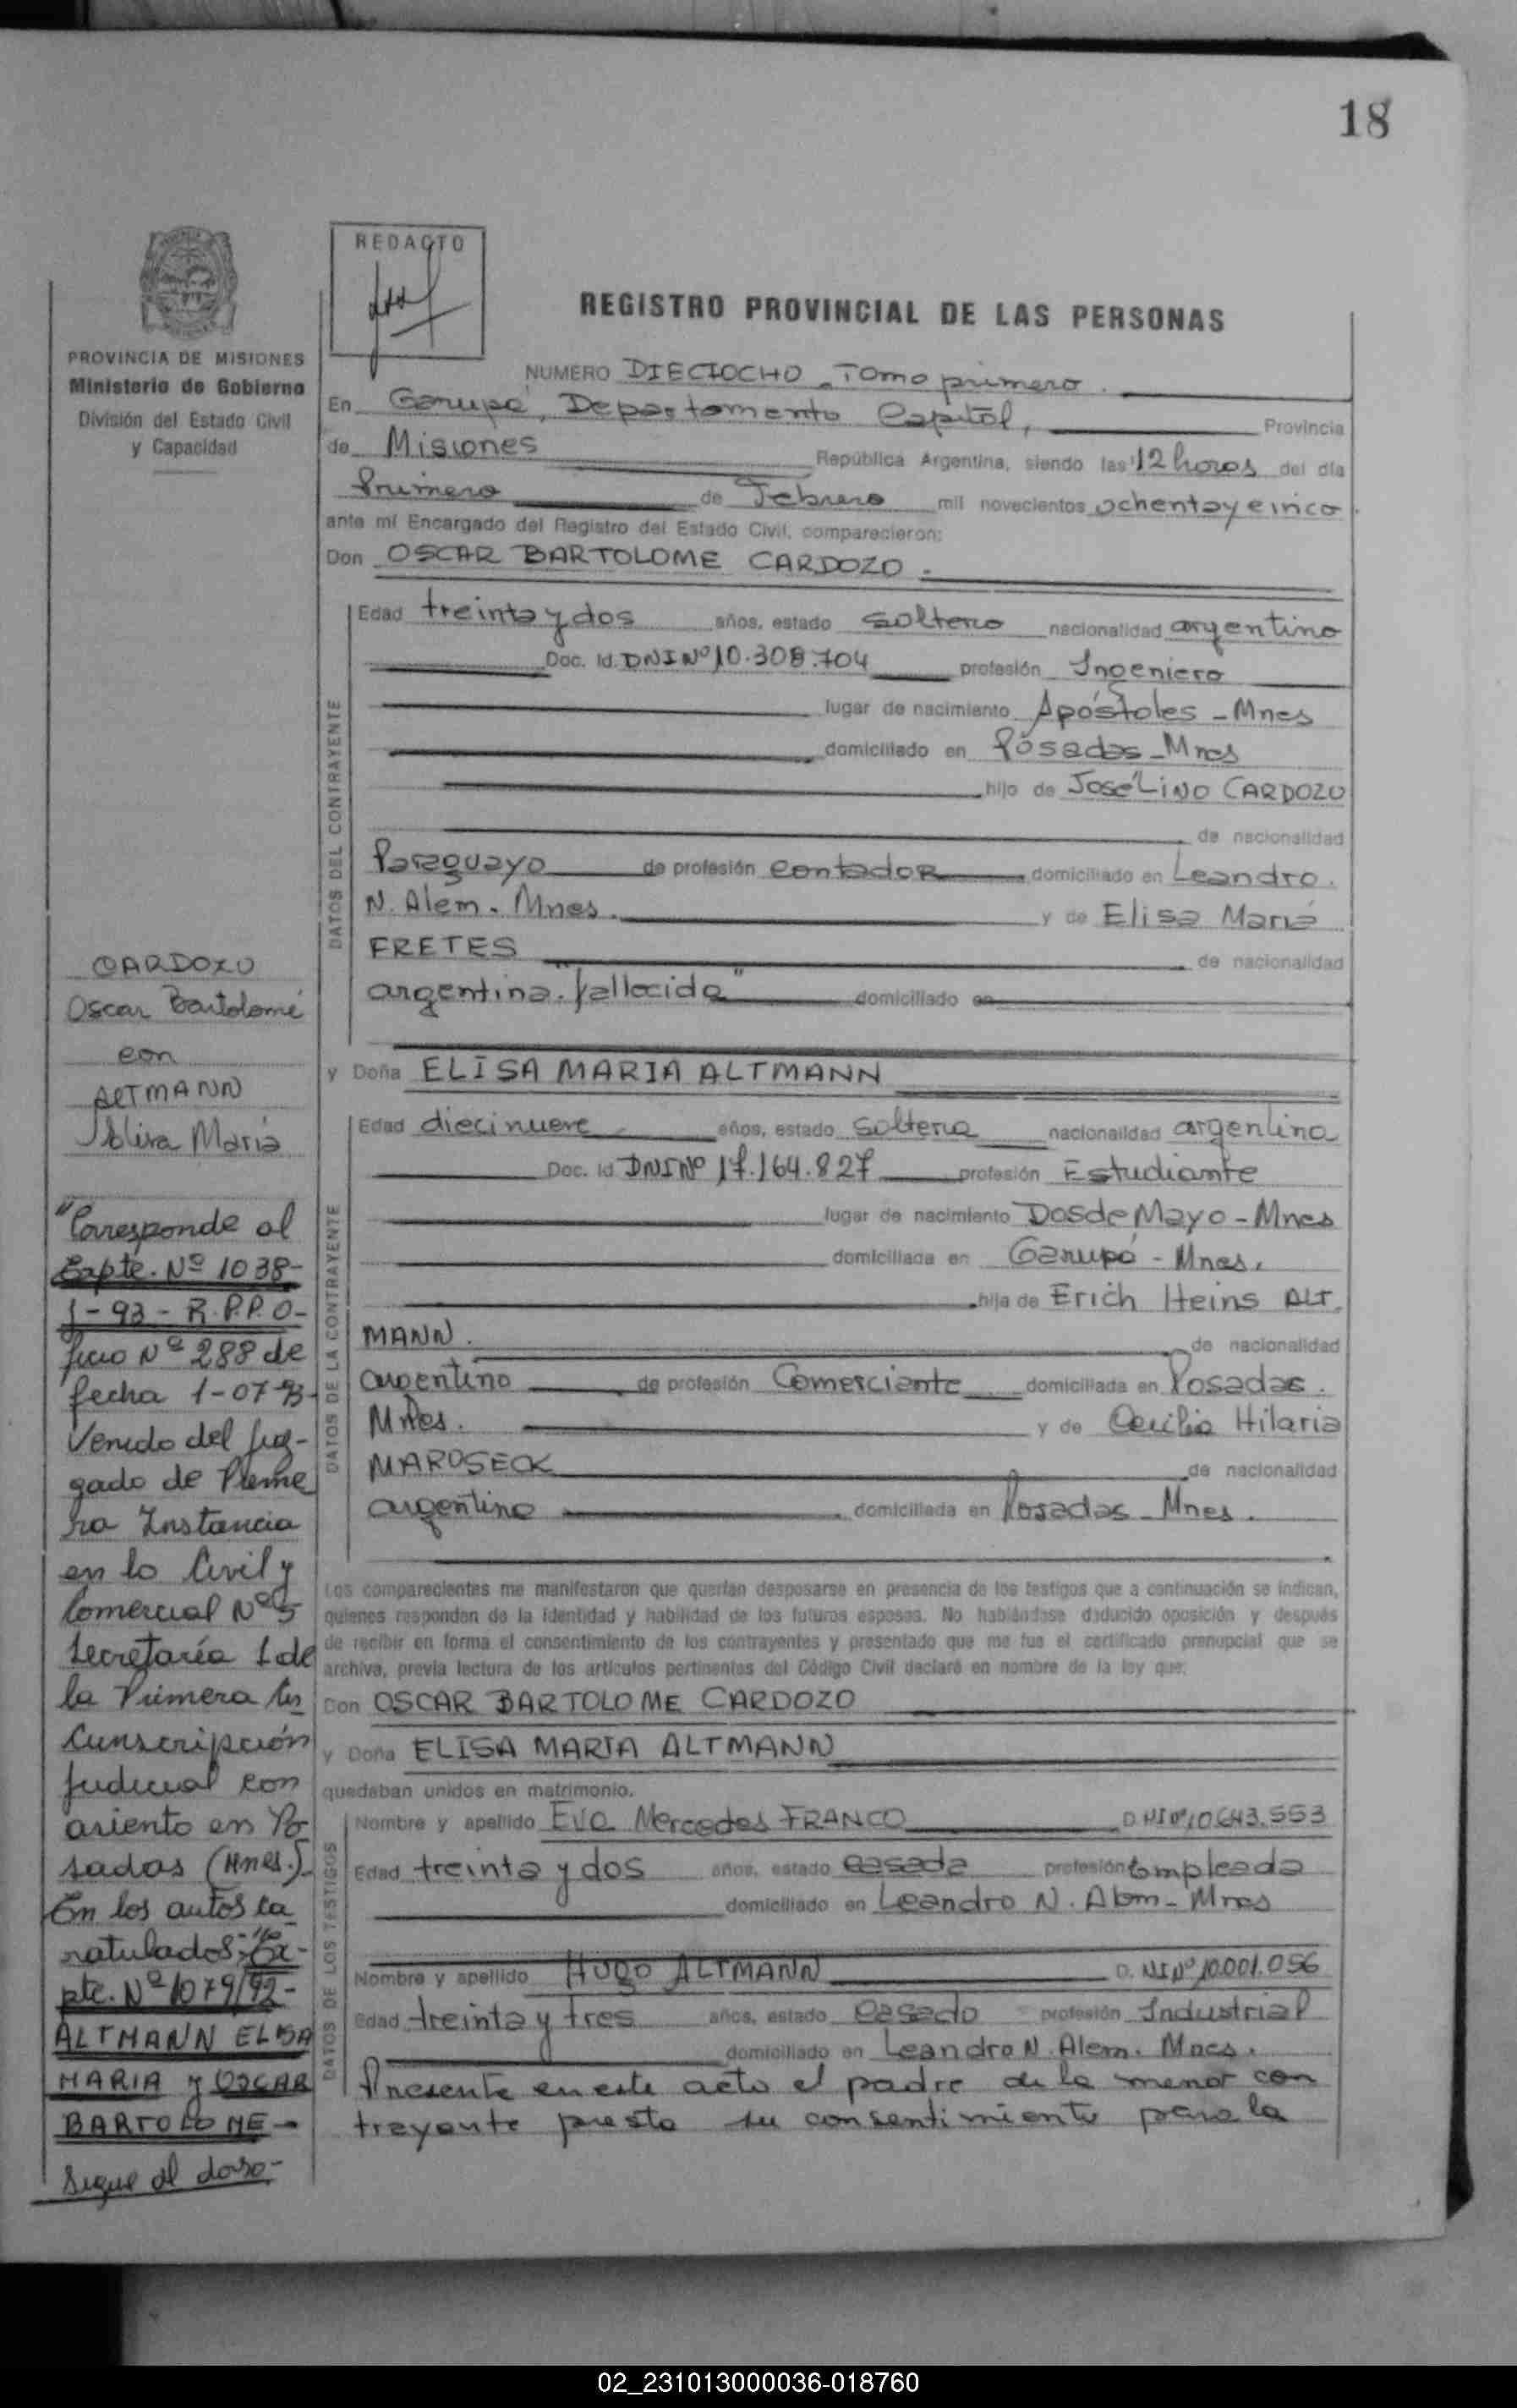 18
REDACTO
REGISTRO PROVINCIAL DE LAS PERSONAS
PROVINCIA DE MISIONES
Ministerio de Gobierno
División del Estado Civil
y Capacidad
NUMERO DIECIOCHO. Tomo primero.
En Garupá, Departamento Capital, Provincia
de Misiones República Argentina, siendo las 12 horas del día
Primero de Febrero mil novecientos ochenta y cinco.
ante mí Encargado del Registro del Estado Civil, comparecieron:
Don OSCAR BARTOLOME CARDOZO.
DATOS DEL CONTRAYENTE
Edad treinta y dos años, estado soltero nacionalidad argentino
Doc. Id. DNI Nº 10.308.704 profesión Ingeniero
lugar de nacimiento Apóstoles - Mnes
domiciliado en Posadas - Mnes
hijo de José LINO CARDOZO
de nacionalidad
Paraguayo de profesión contador domiciliado en Leandro.
N. Alem. Mnes. y de Elisa María
FRETES de nacionalidad
argentina. "fallecida" domiciliado en
y Doña ELISA MARIA ALTMANN
DATOS DE LA CONTRAYENTE
Edad diecinueve años, estado soltera nacionalidad argentina
Doc. Id DNI Nº 17.164.827 profesión Estudiante
lugar de nacimiento Dos de Mayo - Mnes
domiciliada en Garupá - Mnes.
hija de Erich Heins ALT.
MANN. de nacionalidad
argentino de profesión Comerciante domiciliada en Posadas.
Mnes. y de Cecilia Hilaria
MAROSECK de nacionalidad
argentina domiciliada en Posadas - Mnes.
Los comparecientes me manifestaron que querían desposarse en presencia de los testigos que a continuación se indican,
quienes responden de la identidad y habilidad de los futuros esposos. No habiéndose deducido oposición y después
de recibir en forma el consentimiento de los contrayentes y presentado que me fue el certificado prenupcial que se
archiva, previa lectura de los artículos pertinentes del Código Civil declaré en nombre de la ley que:
Don OSCAR BARTOLOME CARDOZO
y Doña ELISA MARIA ALTMANN
quedaban unidos en matrimonio.
DATOS DE LOS TESTIGOS
Nombre y apellido Eva Mercedes FRANCO D.NI Nº 10.643.553
Edad treinta y dos años, estado casada profesión Empleada
domiciliado en Leandro N. Alem - Mnes
Nombre y apellido HUGO ALTMANN D. NI Nº 10.001.056
Edad treinta y tres años, estado casado profesión Industrial
domiciliado en Leandro N. Alem. Mnes.
Presente en este acto el padre de la menor con
trayente presta su consentimiento para la
CARDOZO
Oscar Bartolomé
con
ALTMANN
Elisa María
"Corresponde al
Expte. Nº 1038-
J-93-R.P.P.O-
ficio Nº 288 de
fecha 1-07-93-
Venido del Juz-
gado de Prime
ra Instancia
en lo Civil y
Comercial Nº 5
Secretaría 1 de
la Primera Cir
cunscripción
Judicial con
asiento en Po-
sadas (Mnes.)-
En los autos ca
ratulados: "Ex-
pte. Nº 1079/92-
ALTMANN ELISA
MARIA y OSCAR
BARTOLOME-
Sigue al dorso-
02_231013000036-018760